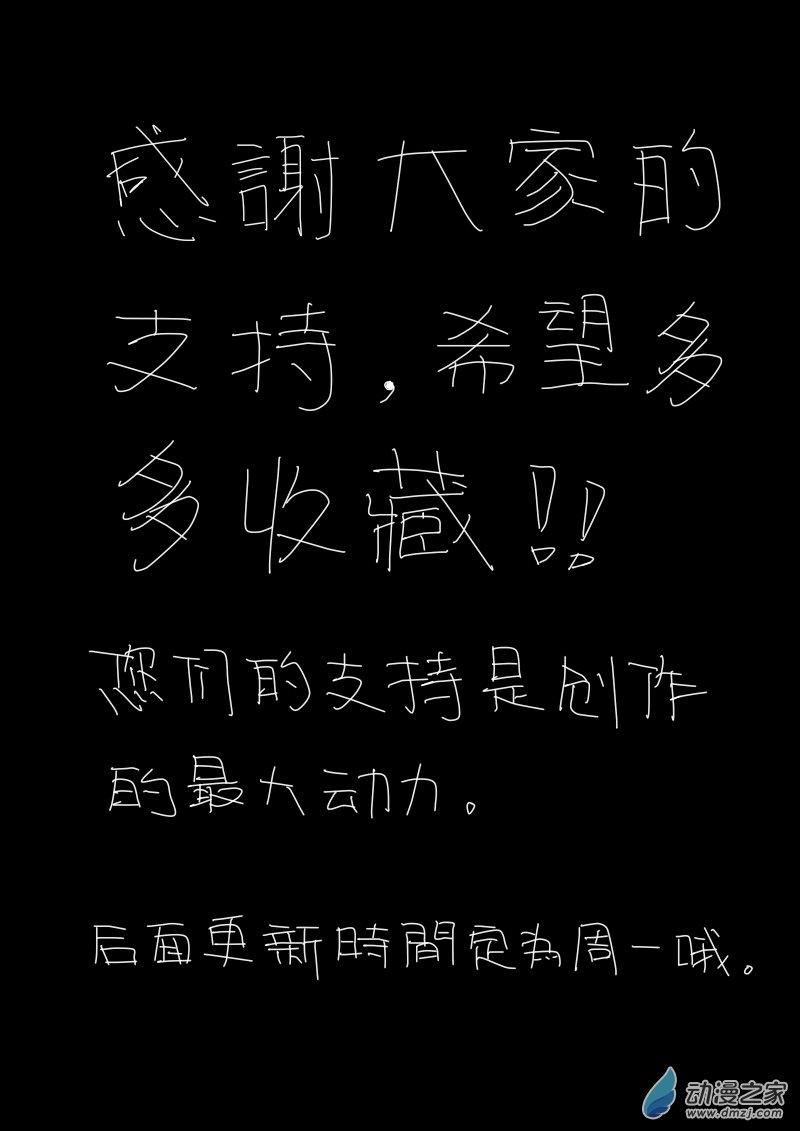 感謝大家的
支持，希望多
多收藏！！
您们的支持是创作
的最大动力。
后面更新時間定為周一哦。
动漫之家
www.dmzj.com